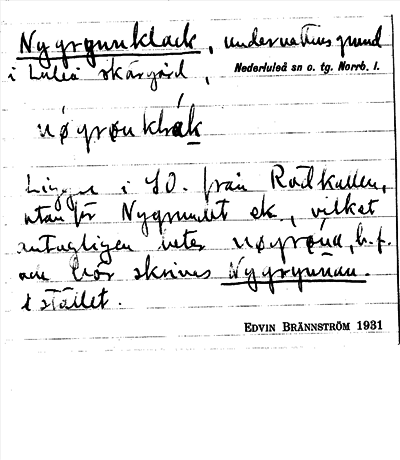 Nygrynnklack, undervattensgrund
i Luleå skärgård,
Nederluleå sn o. tg. Norrb. l.
nøgrønkhlák
Ligger i SO. från Rödkallen,
utanför Nygrundet ek., vilket
antagligen heter nøgrønḍa, b. f.
och bör skrivas Nygrynnan.
i stället.
EDVIN BRÄNNSTRÖM 1931